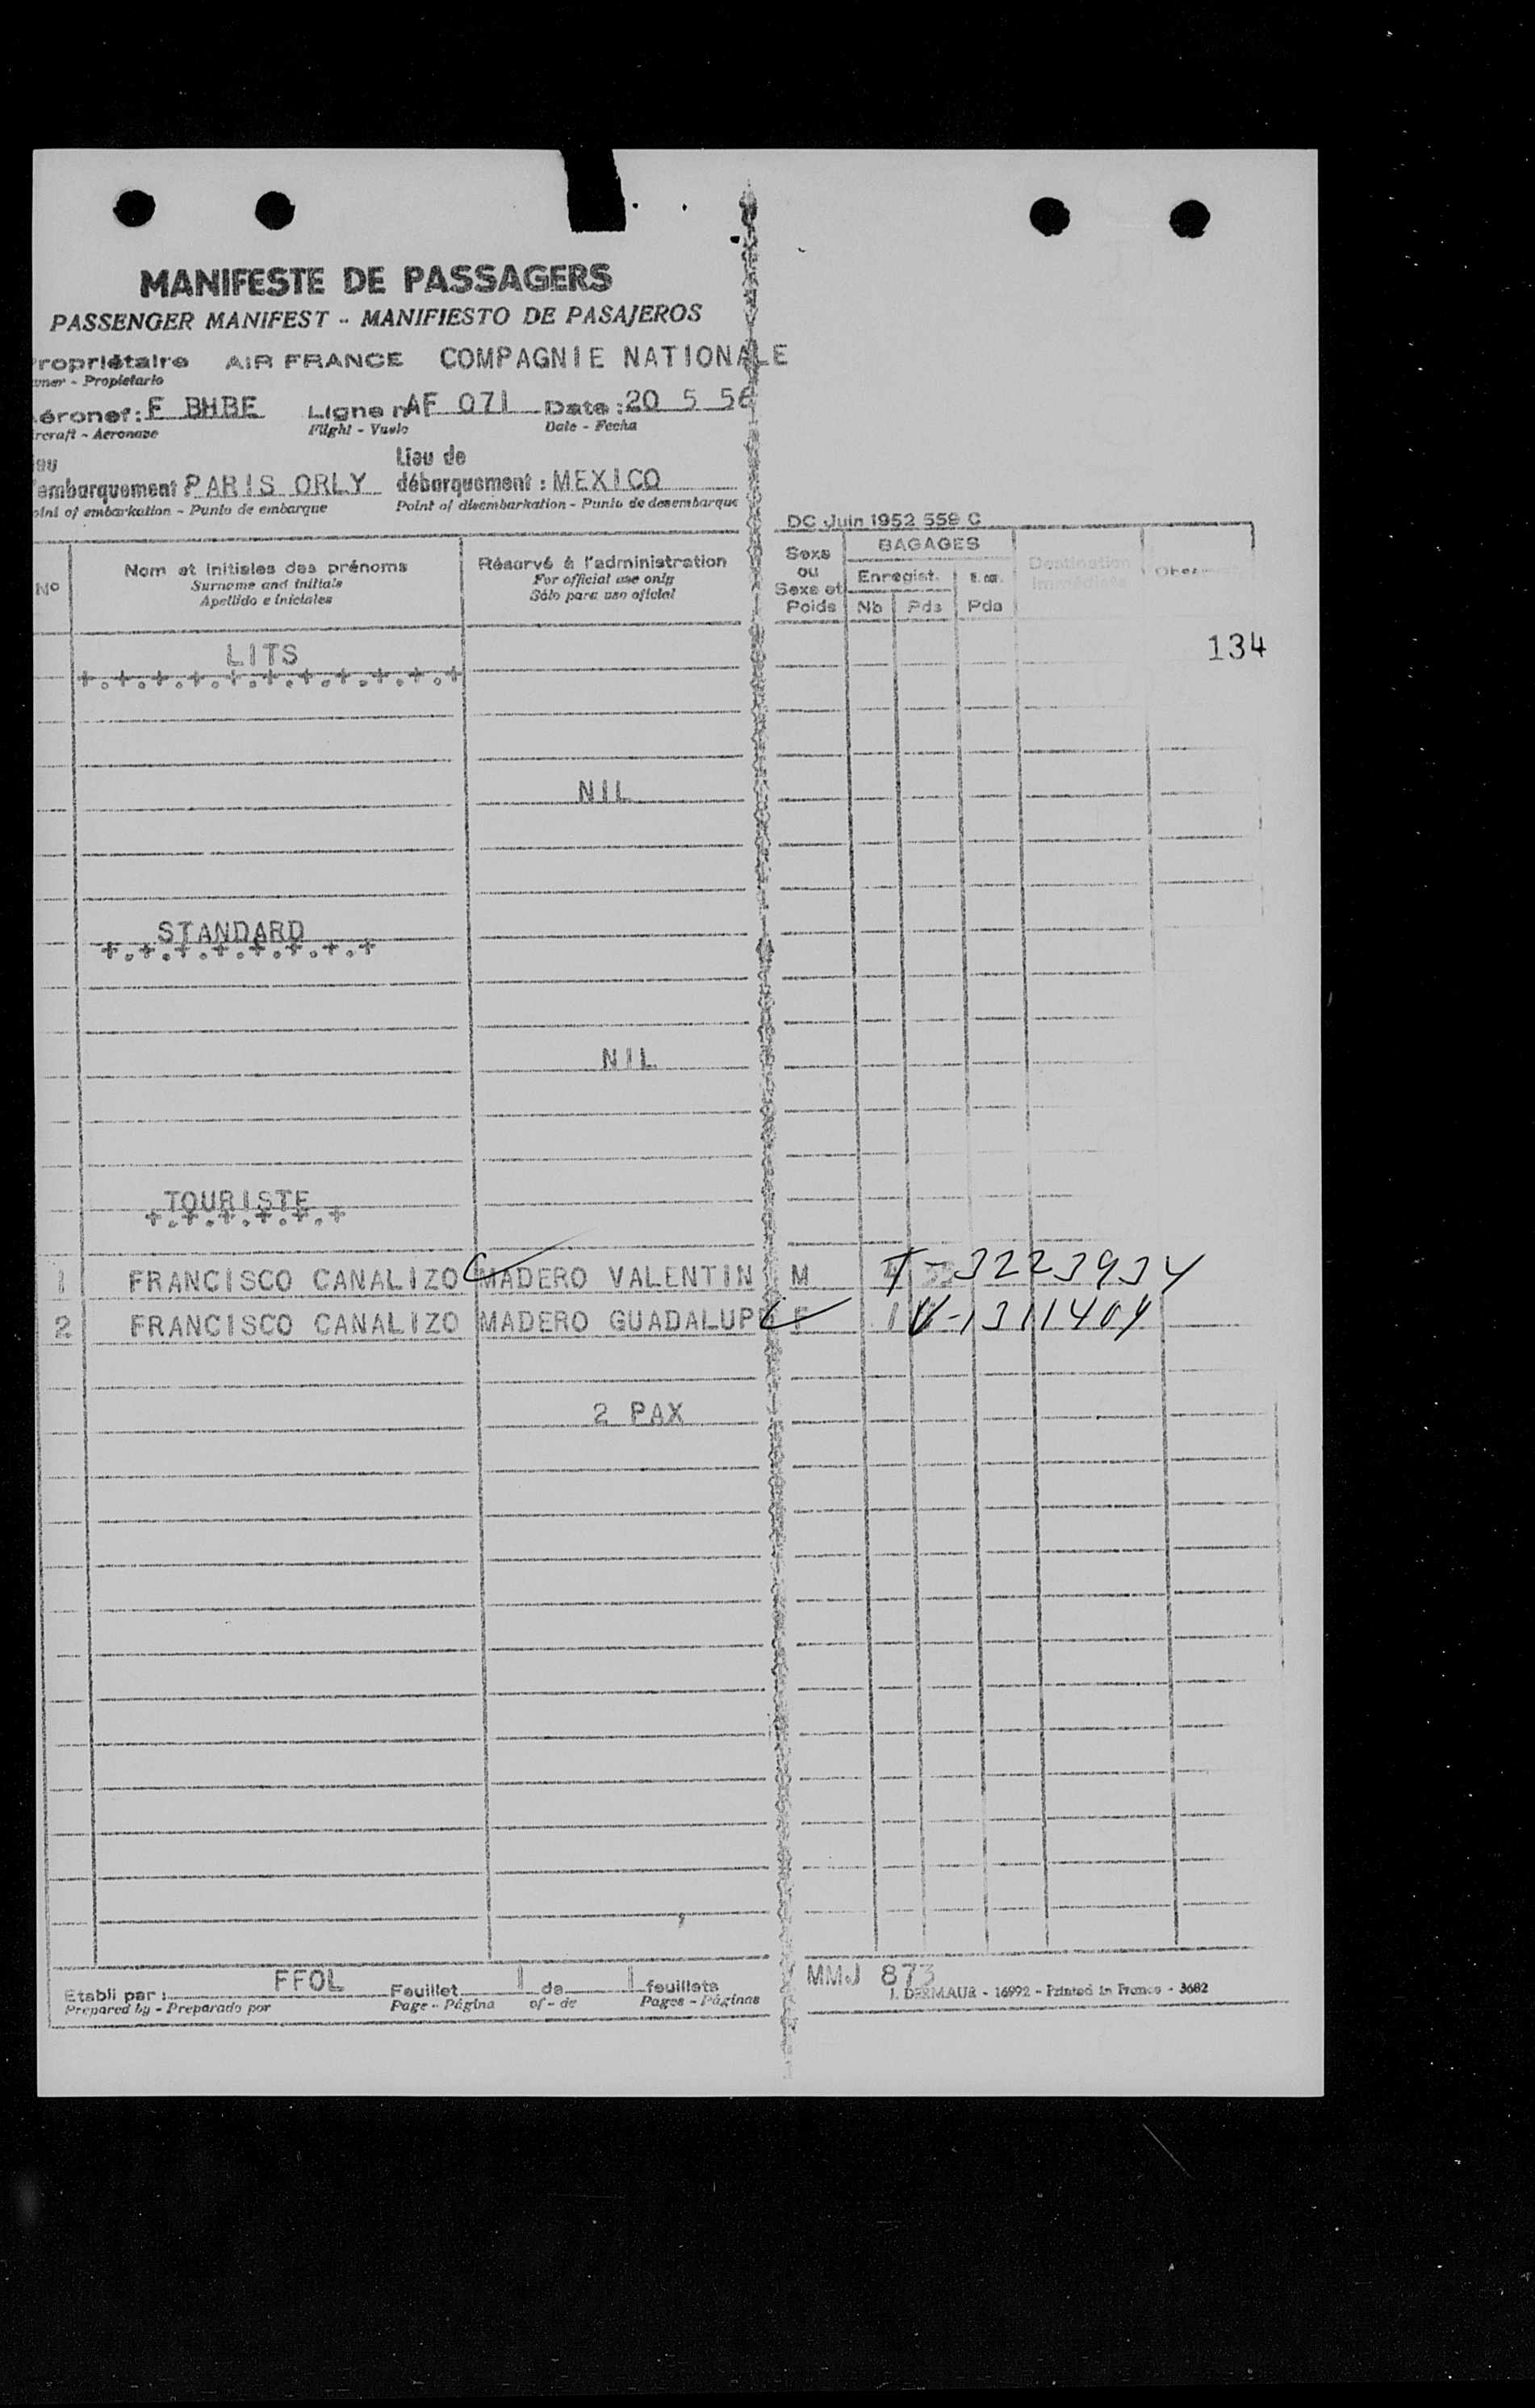 MANIFESTE DE PASSAGERS
PASSENGER MANIFEST - MANIFIESTO DE PASAJEROS
ropriétaire AIR FRANCE COMPAGNIE NATIONALE
wner - Propietario
éronef: F BHBE Ligne n AF 071 Date: 20 5 56
ircraft - Aeronave Flight - Vuelo Date - Fecha
Lieu de
embarquement PARIS ORLY débarquement : MEXICO
oint of embarkation - Punto de embarque Point of disembarkation - Punto de desembarque
DC Juin 1952 559 C
Nº
Nom et initiales des prénoms
Surname and initials
Apellido e iniciales
Réservé à l'administration
For official use only
Sólo para uso oficial
Sexe
ou
Sexe et
Poids
BAGAGES
Enregist.
Nb Pds Pds
Destination
immédiate
134
LITS
+.+.+.+.+.+.+.+.+.+.+
NIL
STANDARD
+.+.+.+.+.+.+.+
NIL
TOURISTE
+.+.+.+.+.+
1 FRANCISCO CANALIZO MADERO VALENTIN M T-3223934
2 FRANCISCO CANALIZO MADERO GUADALUP F 1 V-1311404
2 PAX
Etabli par : FFOL Feuillet 1 de 1 feuillets MMJ 873
Prepared by - Preparado por Page - Página of - de Pages - Páginas
J. DERMAUR - 16992 - Printed in France - 3682